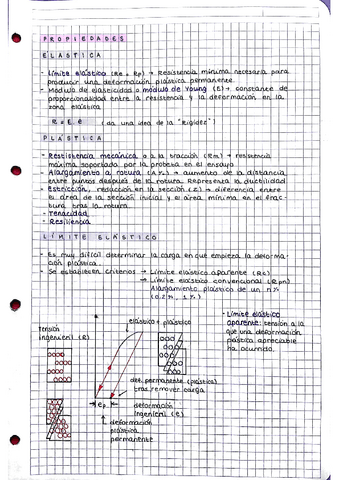 PROPIEDADES
ELÁSTICA
- Límite elástico (Re = Rp) → Resistencia mínima necesaria para
producir una deformación plástica permanente.
- Módulo de elasticidad o módulo de Young (E) → constante de
proporcionalidad entre la resistencia y la deformación en la
zona elástica
R = E.e (da una idea de la "Rigidez")
PLÁSTICA
- Resistencia mecánica o a la tracción (Rm) → resistencia
máxima soportada por la probeta en el ensayo
- Alargamiento a rotura → aumento de la distancia
entre puntos después de la rotura. Representa la ductilidad
- Estricción, reducción en la sección (Z) → diferencia entre
el área de la sección inicial y el área mínima en el frac-
tura tras la rotura
- Tenacidad
- Resiliencia
LÍMITE ELÁSTICO
- Es muy difícil determinar la carga en que empieza la deforma-
ción plástica.
- Se establecen criterios → Límite elástico aparente (Re)
→ Límite elástico convencional (Rpn)
Alargamiento plástico de un n%
(0.2%, 1%)
tensión
ingenieril (R)
elástico + plástico
- Límite elástico
aparente: tensión a la
que una deformación
plástica apreciable
ha ocurrido.
def. permanente (plástica)
tras remover carga
ep
deformación
ingenieril (e)
deformación
plástica
permanente